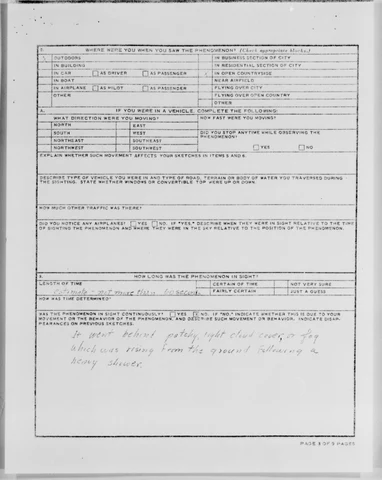 WHERE WERE YOU WHEN YOU SAW THE PHENOMENON? (Check appropriate blocks.)
OUTDOORS IN BUSINESS SECTION OF CITY
IN BUILDING IN RESIDENTIAL SECTION OF CITY
IN CAR AS DRIVER AS PASSENGER IN OPEN COUNTRYSIDE
IN BOAT NEAR AIRFIELD
IN AIRPLANE AS PILOT AS PASSENGER FLYING OVER CITY
OTHER FLYING OVER OPEN COUNTRY
OTHER
IF YOU WERE IN A VEHICLE, COMPLETE THE FOLLOWING:
WHAT DIRECTION WERE YOU MOVING? HOW FAST WERE YOU MOVING?
NORTH EAST
SOUTH WEST DID YOU STOP ANYTIME WHILE OBSERVING THE
NORTHEAST SOUTHEAST PHENOMENON?
NORTHWEST SOUTHWEST YES NO
EXPLAIN WHETHER SUCH MOVEMENT AFFECTS YOUR SKETCHES IN ITEMS 5 AND 6.
DESCRIBE TYPE OF VEHICLE YOU WERE IN AND TYPE OF ROAD, TERRAIN OR BODY OF WATER YOU TRAVERSED DURING
THE SIGHTING. STATE WHETHER WINDOWS OR CONVERTIBLE TOP WERE UP OR DOWN.
HOW MUCH OTHER TRAFFIC WAS THERE?
DID YOU NOTICE ANY AIRPLANES? YES NO. IF "YES," DESCRIBE WHEN THEY WERE IN SIGHT RELATIVE TO THE TIME
OF SIGHTING THE PHENOMENON AND WHERE THEY WERE IN THE SKY RELATIVE TO THE POSITION OF THE PHENOMENON.
HOW LONG WAS THE PHENOMENON IN SIGHT?
LENGTH OF TIME CERTAIN OF TIME NOT VERY SURE
estimate - not more than seconds FAIRLY CERTAIN JUST A GUESS
HOW WAS TIME DETERMINED?
WAS THIS PHENOMENON IN SIGHT CONTINUOUSLY? YES NO. IF "NO," INDICATE WHETHER THIS IS DUE TO YOUR
MOVEMENT OR THE BEHAVIOR OF THE PHENOMENON AND DESCRIBE SUCH MOVEMENT OR BEHAVIOR. INDICATE DISAP-
PEARANCES ON PREVIOUS SKETCHES.
It went behind patchy, light cloud cover or fog
which was rising from the ground following a
heavy shower.
PAGE 3 OF 9 PAGES